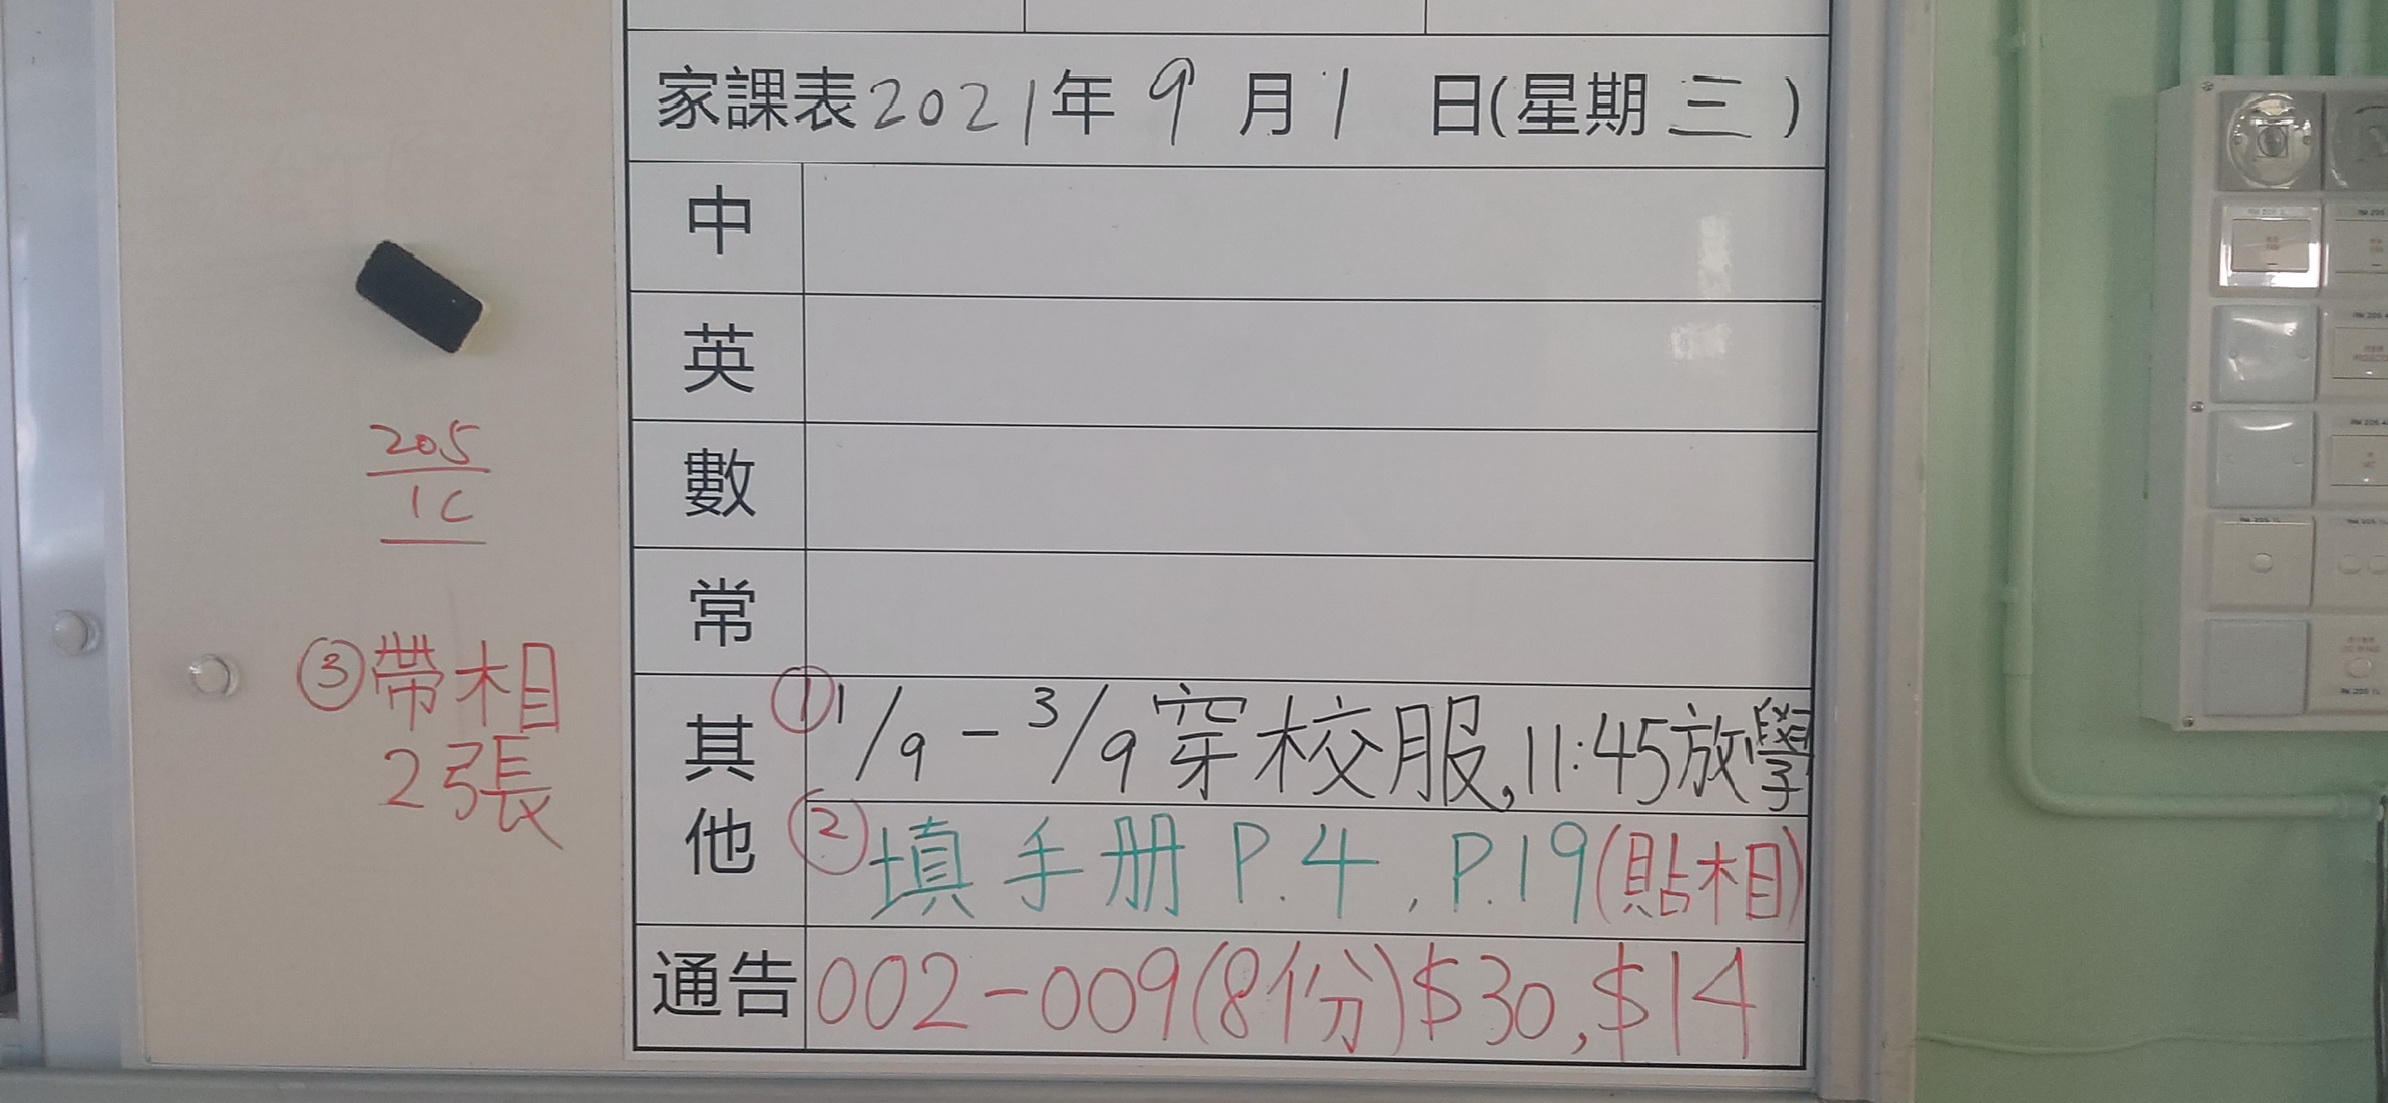 家課表2021年 9 月 1 日(星期 三 )
中
英
數
常
其他
① 1/9 - 3/9 穿校服,11:45放學
② 填手册 P.4, P.19(貼相)
通告 002-009(8份)$30,$14
205
1C
③帶相
2張